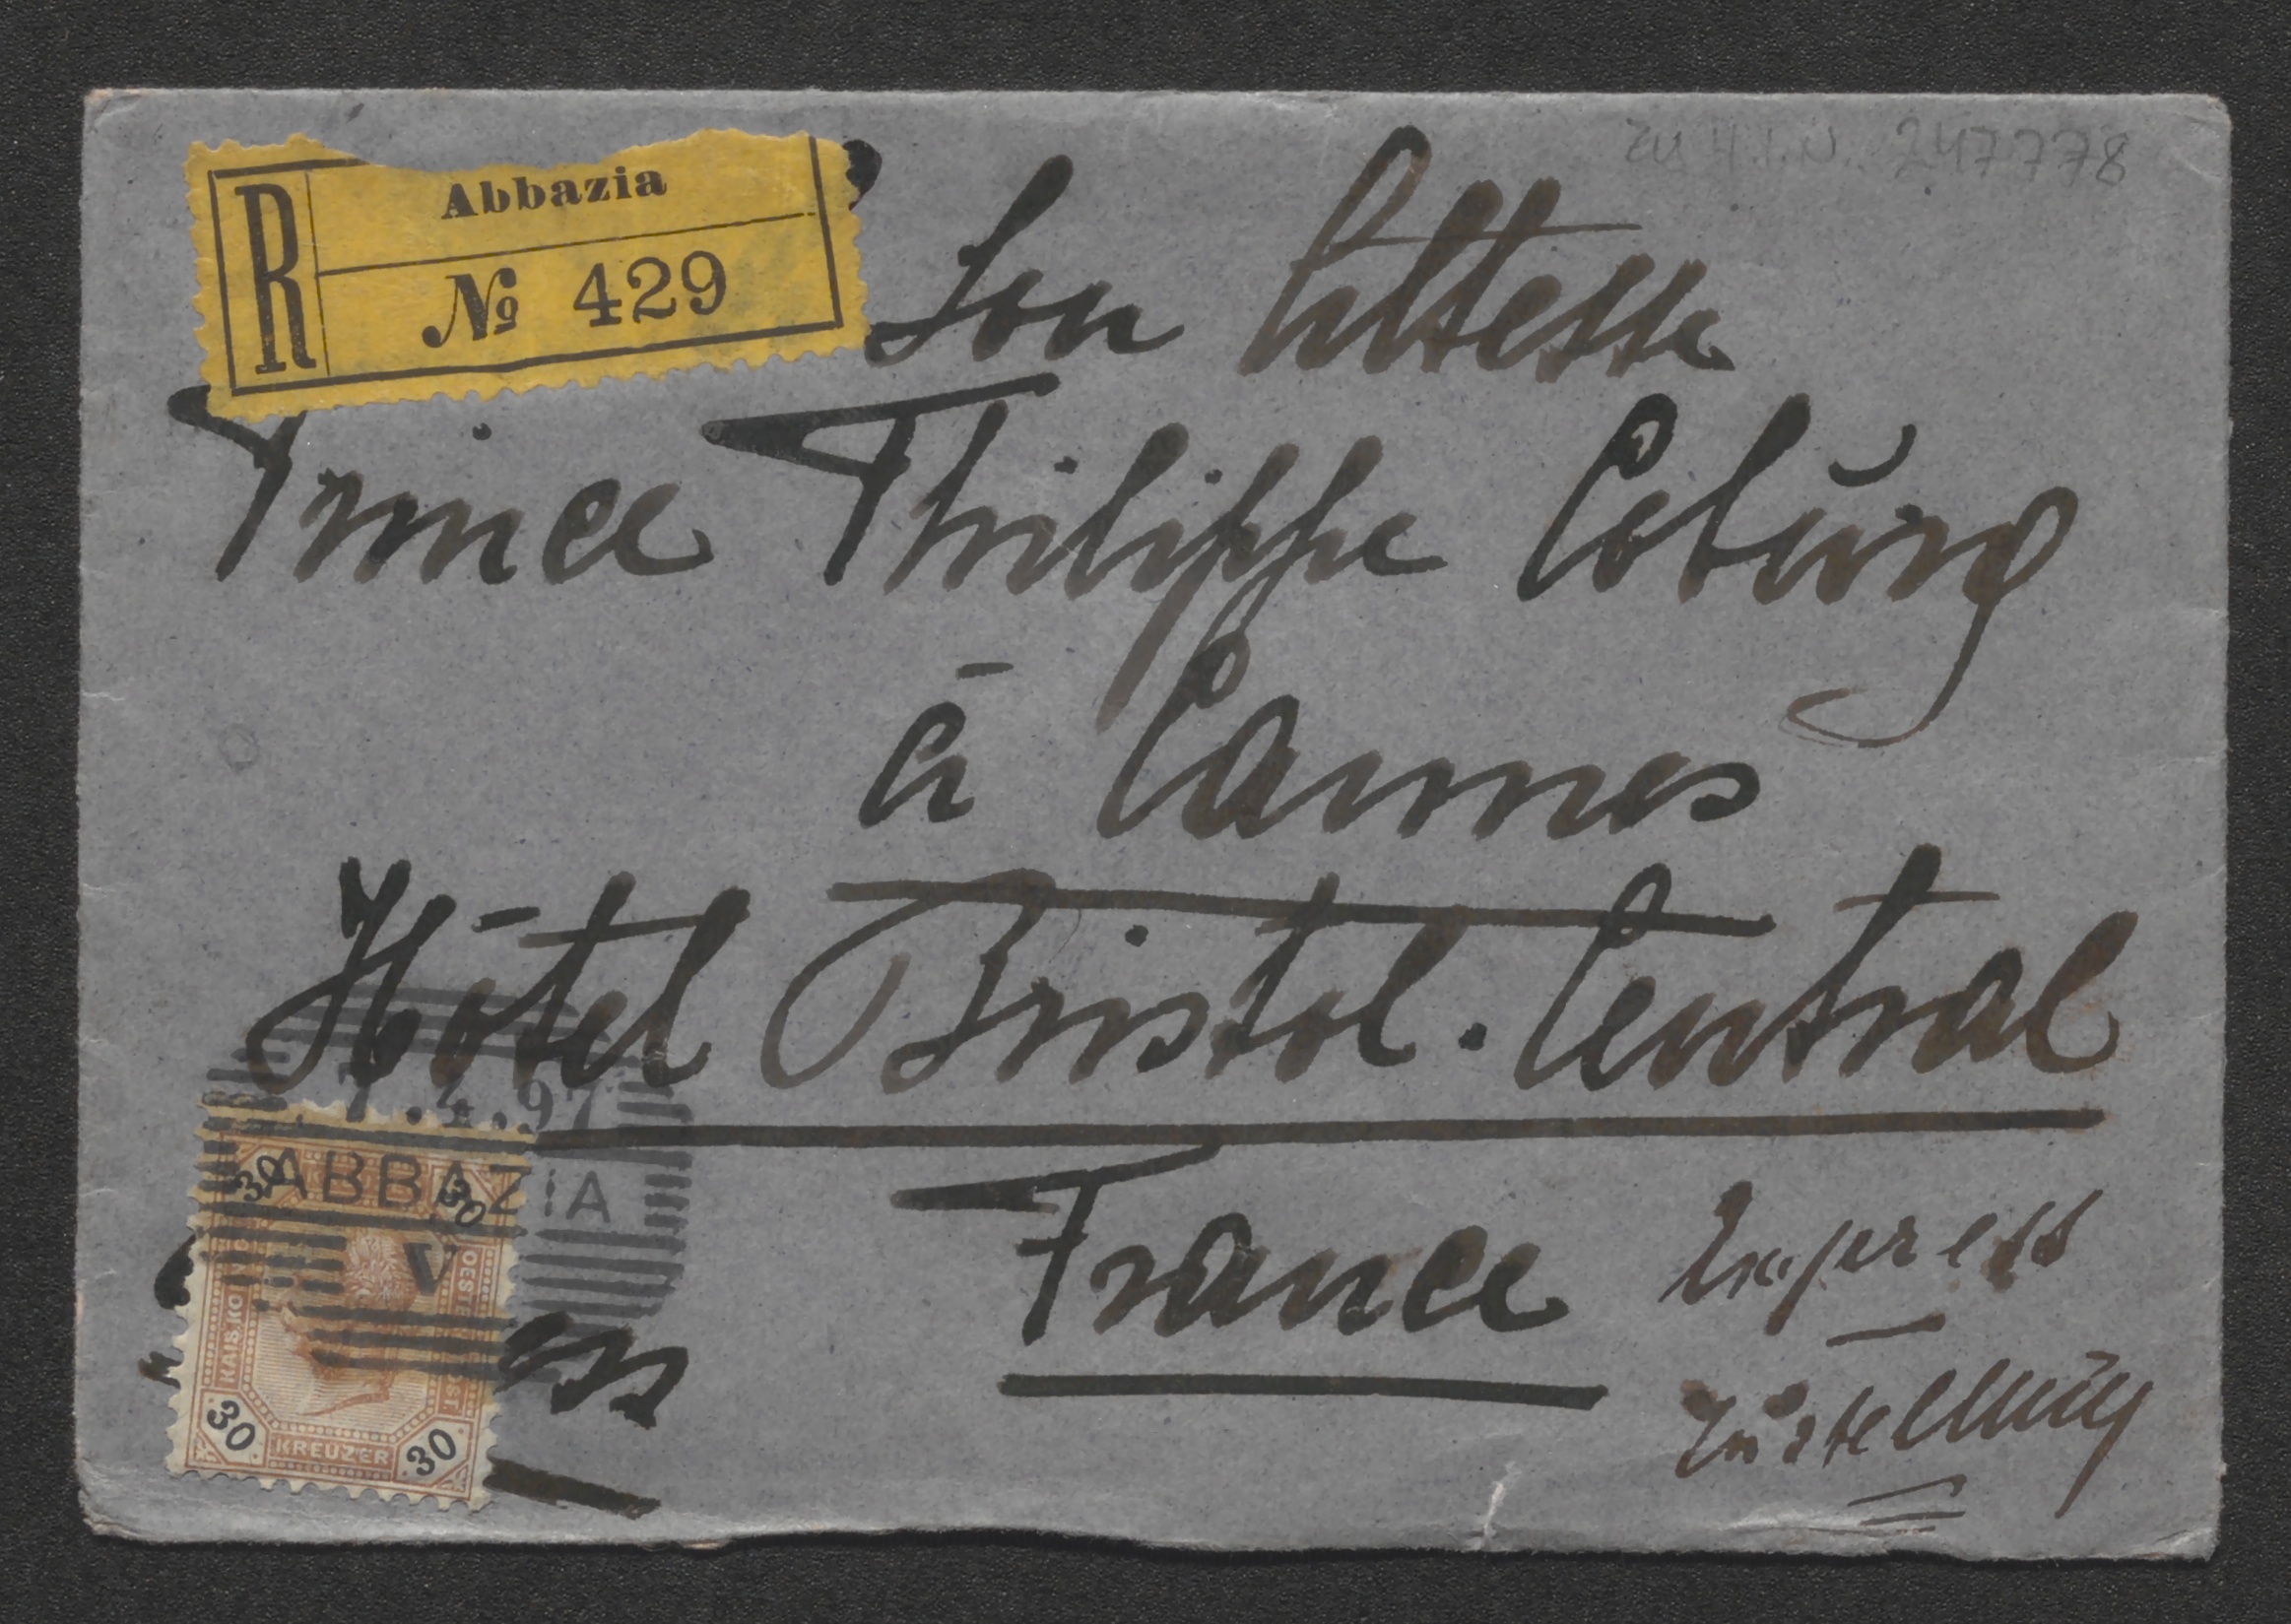 zu H.I.N. 247778
R
Abbazia
№ 429
Son Altesse
Prince Philippe Cobŭrg
à Cannes
Hôtel Bristol. Central
France
Express
Zŭstellŭng
7.4.97
ABBAZIA
V
30 30
KREUZER
30 30
KAIS. KO
OESTE
ess